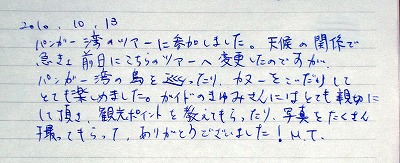 2010.10.13
パンガー湾のツアーに参加しました。天候の関係で
急きょ前日にこちらのツアーへ変更したのですが、
パンガー湾の島をったり、カヌーをこいだりして
とても楽しめました。ガイドのきゆみさんにはとても親切に
して頂き、観光ポイントを教えてもらったり、写真をたくさん
撮ってもらって、ありがとうございました！M.T.